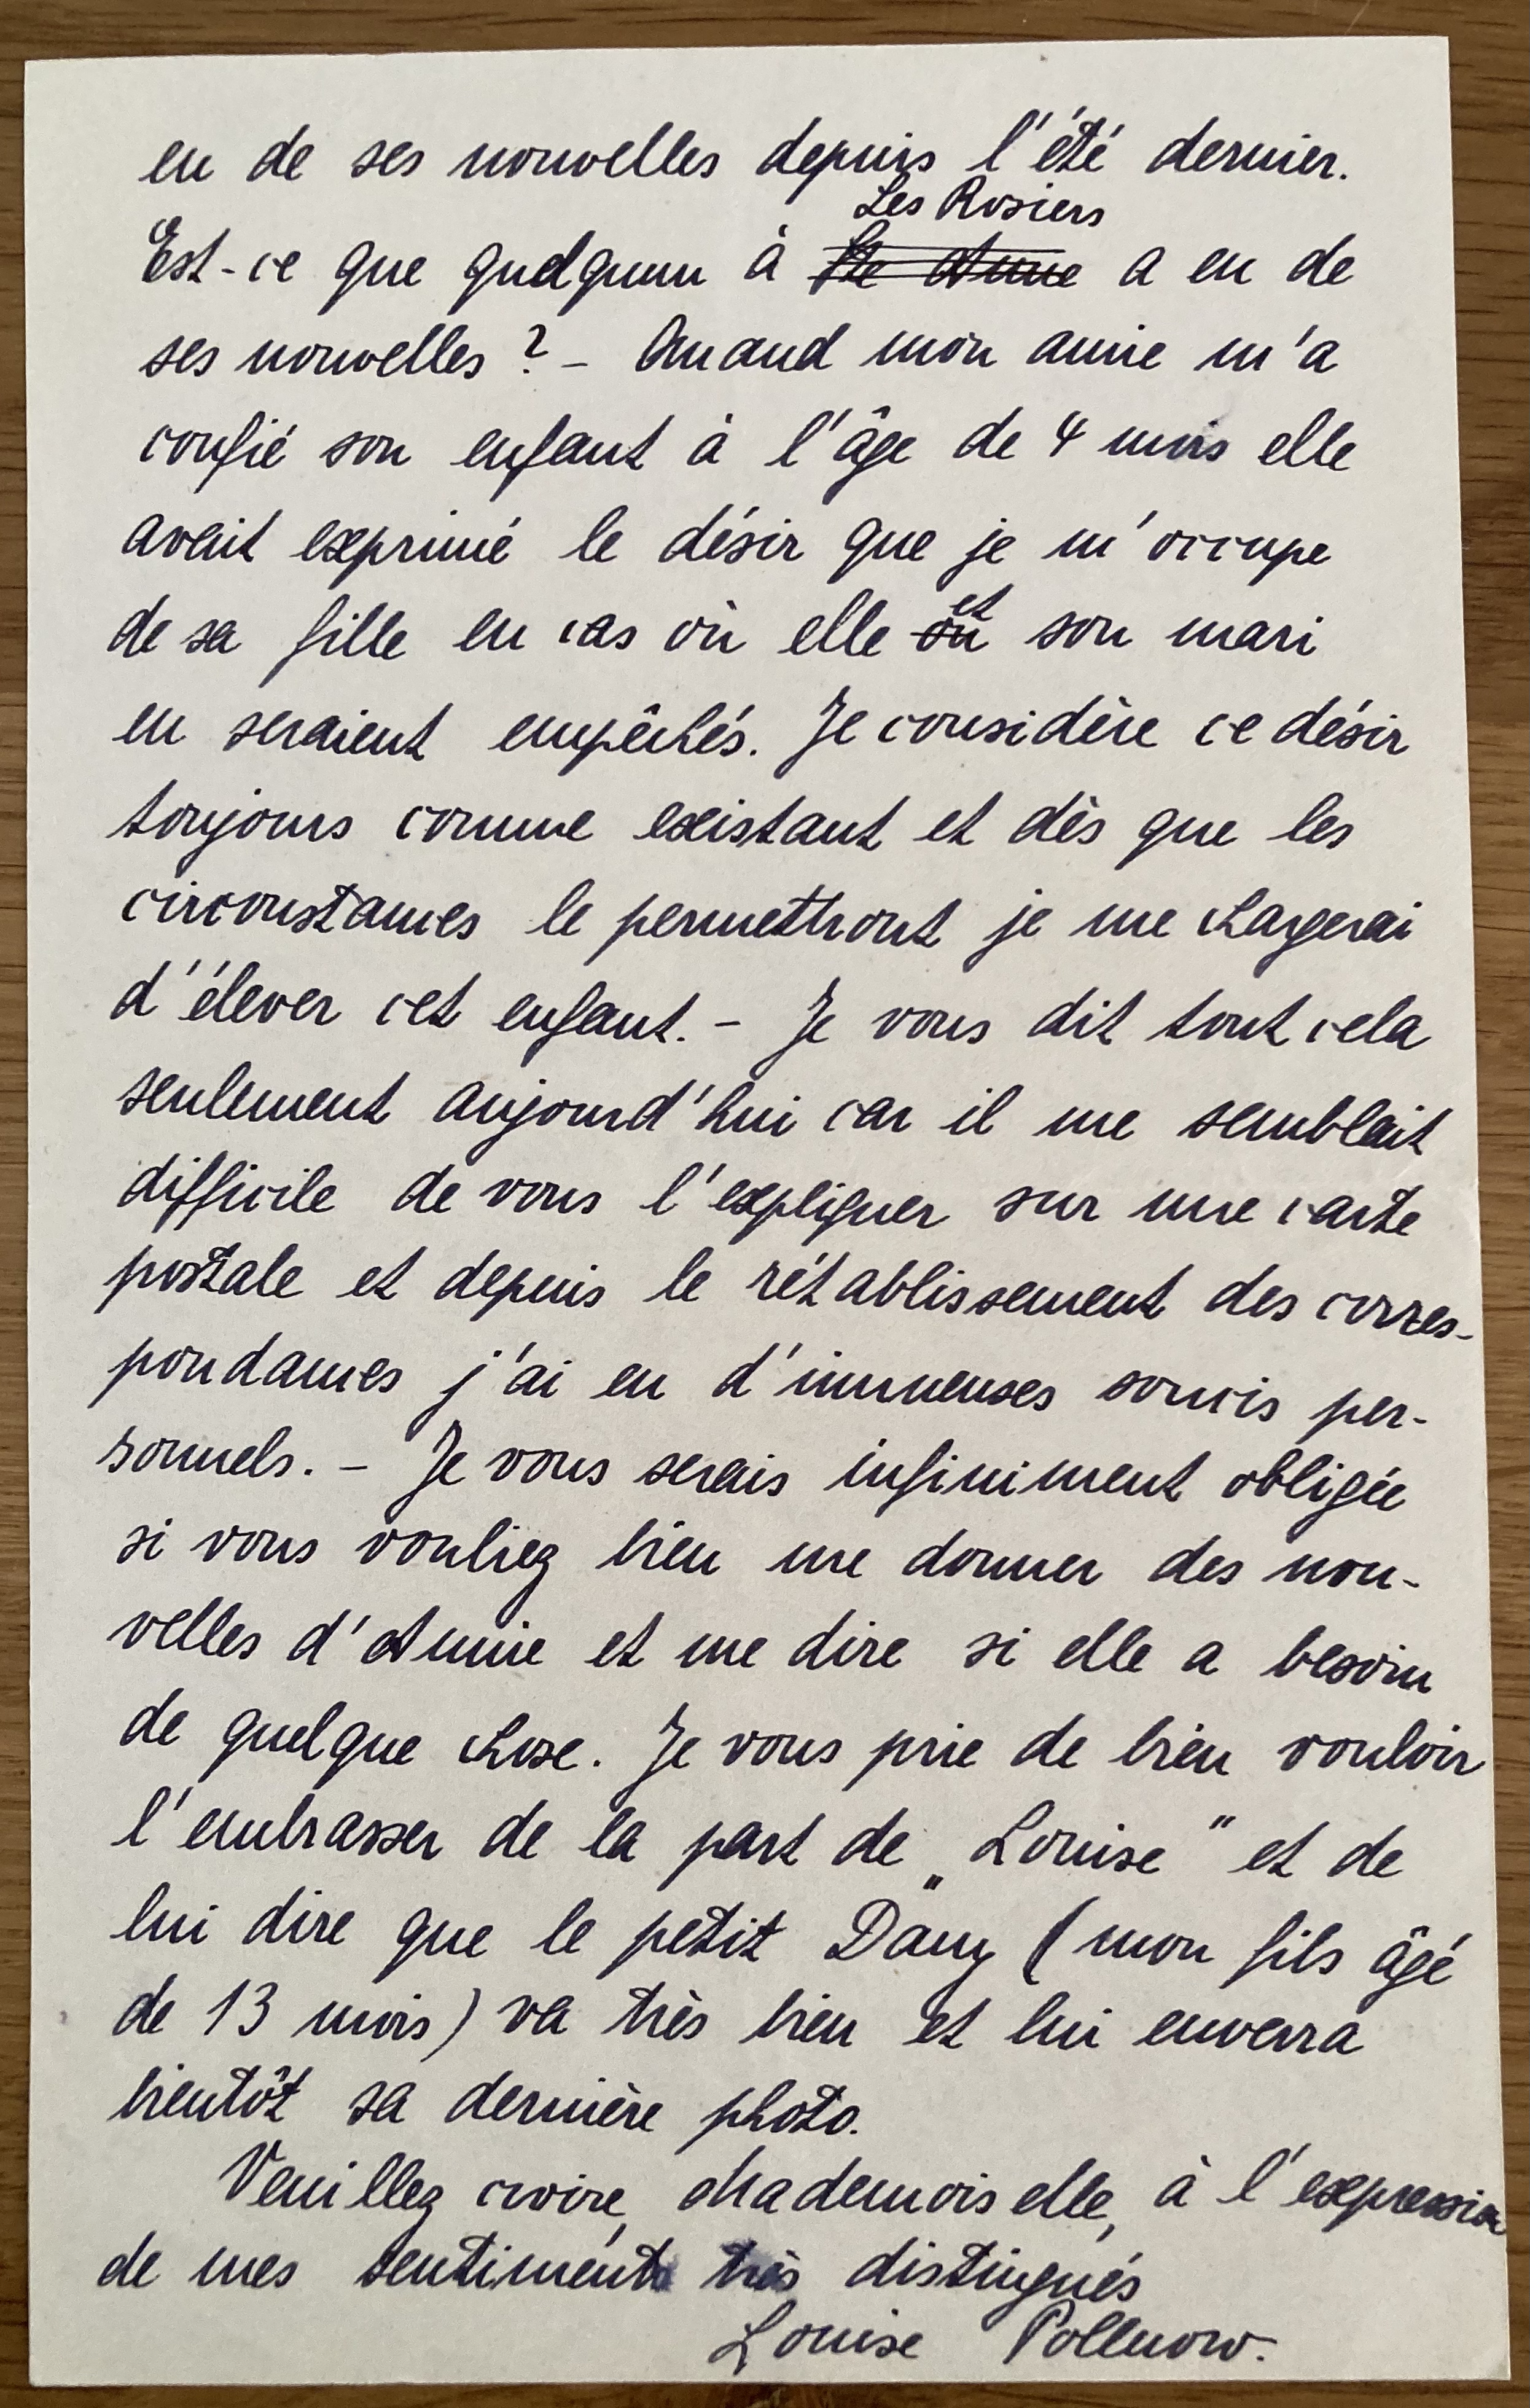 eu de ses nouvelles depuis l'été dernier.
Les Rosiers
Est-ce que quelquun à a eu de
ses nouvelles ? – Quand mon amie m'a
confié son enfant à l'âge de 4 mois elle
avait exprimé le désir que je m'occupe
et
de sa fille en cas où elle ou son mari
en seraient empêchés. Je considère ce désir
toujours comme existant et dès que les
circonstances le permettront je me chargerai
d'élever cet enfant. – Je vous dit tout cela
seulement aujourd'hui car il me semblait
difficile de vous l'expliquer sur une carte
postale et depuis le rétablissement des corres-
pondances j'ai eu d'immenses soucis per-
sonnels. – Je vous serais infiniment obligée
si vous vouliez bien me donner des nou-
velles d'Annie et me dire si elle a besoin
de quelque chose. Je vous prie de bien vouloir
l'embrasser de la part de „Louise" et de
lui dire que le petit Dany (mon fils âgé
de 13 mois) va très bien et lui enverra
bientôt sa dernière photo.
Veuillez croire, Mademoiselle, à l'expression
de mes sentiments très distingués
Louise Pollnow.